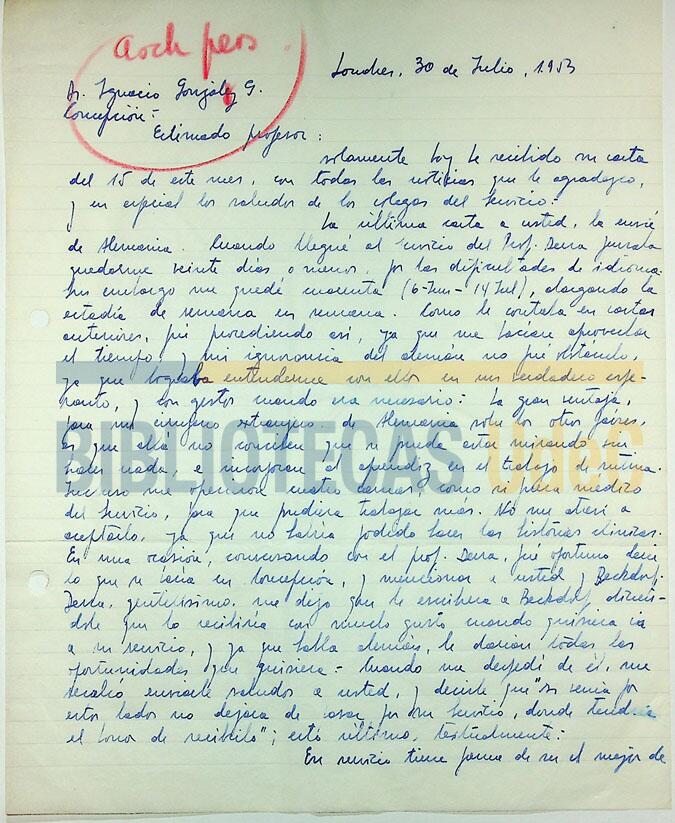 Arch pers
Londres, 30 de Julio, 1953
Dr. Ignacio González G.
Concepción.-
Estimado profesor:
solamente hoy he recibido su carta
del 15 de este mes, con todas las noticias que le agradezco,
y en especial los saludos de los colegas del Servicio.-
La última carta a usted, la envié
de Alemania. Cuando llegué al servicio del Prof. Derra pensaba
quedarme veinte días o menos, por las dificultades de idioma.
Sin embargo me quedé cuarenta (6-Jun - 14 Jul), alargando la
estadía de semana en semana. Como le contaba en cartas
anteriores, fui procediendo así, ya que me hacían aprovechar
el tiempo, y mi ignorancia del alemán no fué obstáculo,
ya que lograba entenderme con ellos en un verdadero espe-
ranto, y con gestos cuando era necesario.- La gran ventaja,
para un cirujano extranjero, de Alemania sobre los otros países,
es que ellos no conciben que se pueda estar mirando sin
hacer nada, e incorporan al aprendiz en el trabajo de rutina.
Incluso me ofrecieron cuatro camas, como si fuera médico
del Servicio, para que pudiera trabajar más. No me atreví a
aceptarlo, ya que no habría podido hacer las historias clínicas.
En una ocasión, conversando con el prof. Derra, fué oportuno decir
lo que se hacía en Concepción, y mencionar a usted y Beckdorf.
Derra, gentilísimo, me dijo que le escribiera a Beckdorf, dicién-
dole que lo recibiría con mucho gusto cuando quisiera ir
a su servicio, y ya que habla alemán, le darían todas las
oportunidades que quisiera.- Cuando me despedí de él, me
recalcó enviarle saludos a usted, y decirle que "si venía por
estos lados no dejara de pasar por su Servicio, donde tendría
el honor de recibirlo"; esto último, textualmente.-
Su servicio tiene fama de ser el mejor de
BIBLIOTECAS UdeC